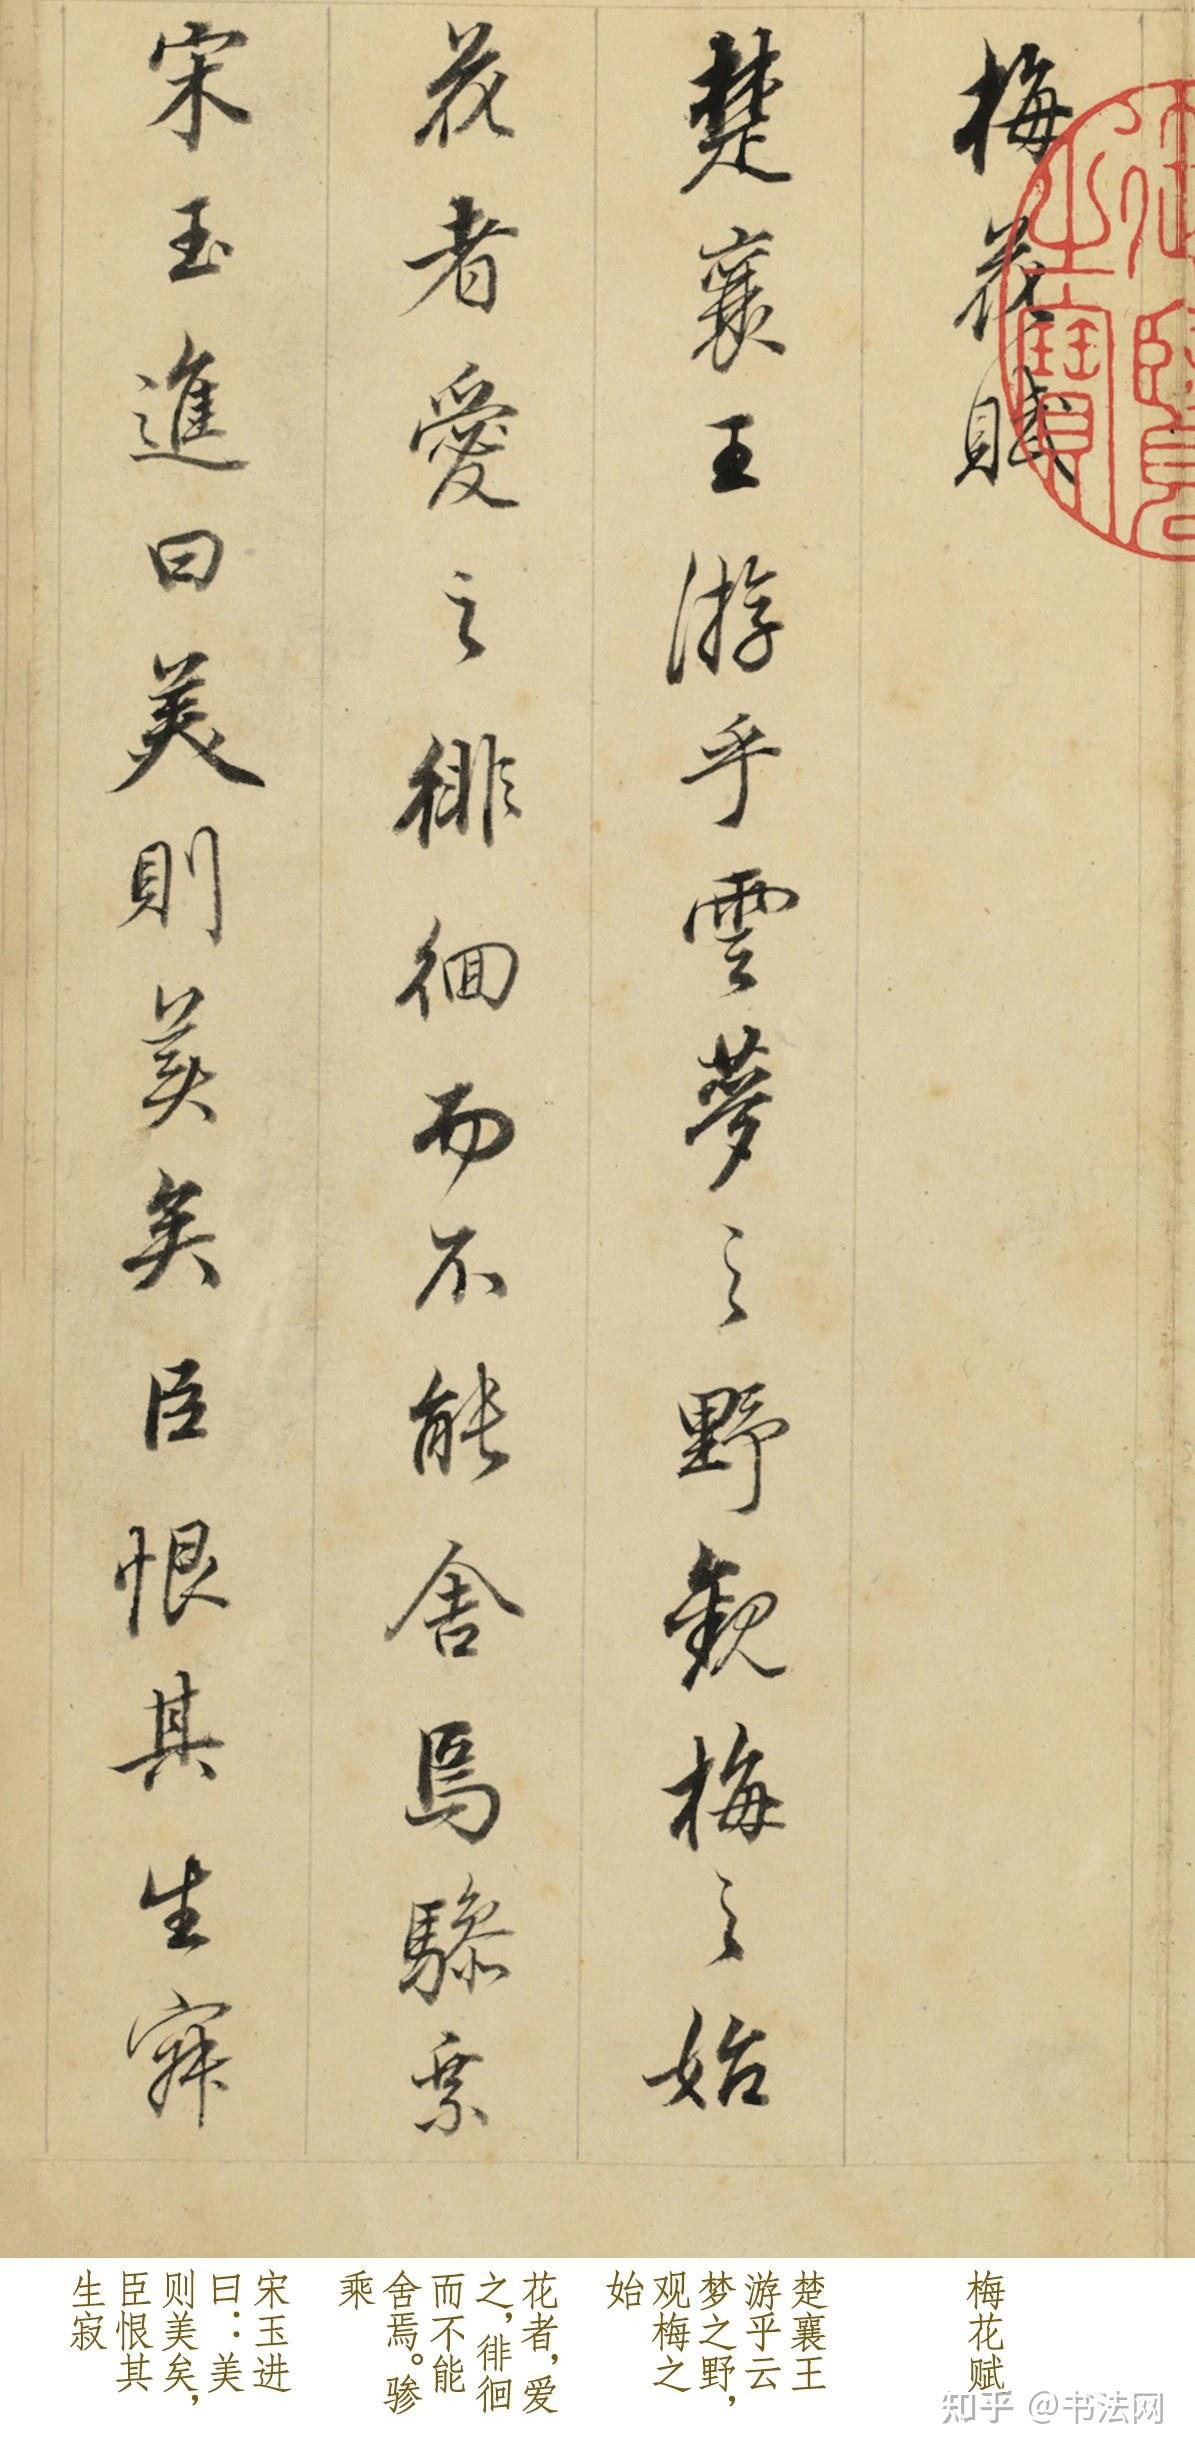 梅花賦
楚襄王游乎雲夢之野觀梅之始
花者愛之徘徊而不能舍焉驂乘
宋玉進曰美則美矣臣恨其生寂
御覽之寶
梅花赋
楚襄王
游乎云
梦之野，
观梅之
始
花者，爱
之，徘徊
而不能
舍焉。骖
乘
宋玉进
曰：美
则美矣，
臣恨其
生寂
知乎 @书法网